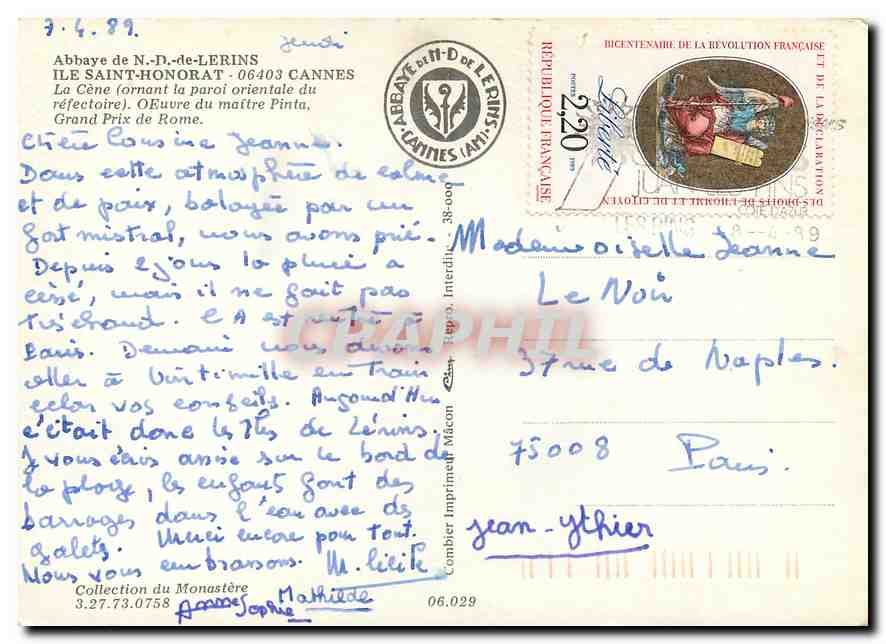 7.4.89.
jeudi
Abbaye de N.-D.-de-LERINS
ILE SAINT-HONORAT - 06403 CANNES
La Cène (ornant la paroi orientale du
réfectoire). OEuvre du maître Pinta,
Grand Prix de Rome.
Chère Cousine Jeanne.
Dans cette atmosphère de calme
et de paix, balayée par un
fort mistral, nous avons prié.
Depuis 2 jours la pluie a
cessé, mais il ne fait pas
très chaud. C A est rentré à
Paris. Demain nous devons
aller à Vintimille en train
selon vos conseils. Aujourd'Hui
c'était donc les Iles de Lérins.
J vous écris assise sur le bord de
la plage, les enfants font des
barrages dans l'eau avec des
galets. Merci encore pour tout.
Nous vous embrassons.
Mathilde
Sophie
Collection du Monastère
3.27.73.0758
06.029
ABBAYE DE N-D DE LERINS
CANNES (AM)
Combier Imprimeur Mâcon
Cim
Repro. Interdite - 38-000
CPAPHIL
BICENTENAIRE DE LA REVOLUTION FRANÇAISE
ET DE LA DECLARATION
DES DROITS DE L'HOMME ET DU CITOYEN
REPUBLIQUE FRANÇAISE
POSTES 2,20 1989
Liberté
COTE D'AZUR
8-4-89
Mademoiselle Jeanne
Le Noir
37 rue de Naples.
75008 Paris.
Jean-Ythier